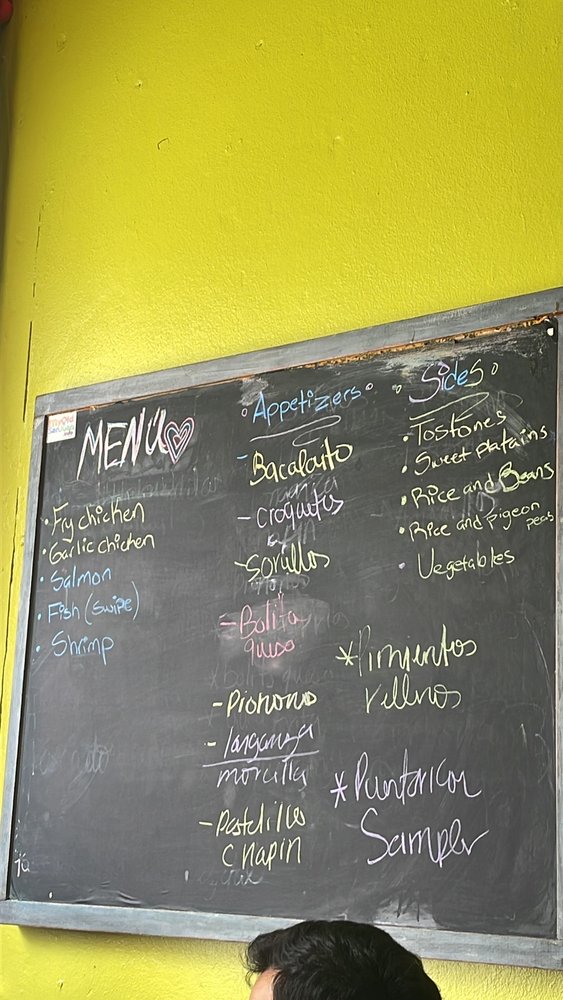 MENÜ
• Fry chicken
• Garlic chicken
• Salmon
• Fish (swipe)
• Shrimp
° Appetizers °
- Bacalaito
- Croquetas
- Sorullos
- Bolita
queso
- Pionono
- longaniza
morcilla
- Pastelillos
Chapin
° Sides °
• Tostones
• Sweet Platains
• Rice and Beans
• Rice and Pigeon
peas
• Vegetables
* Pimientos
rellenos
* Puertorican
Sampler